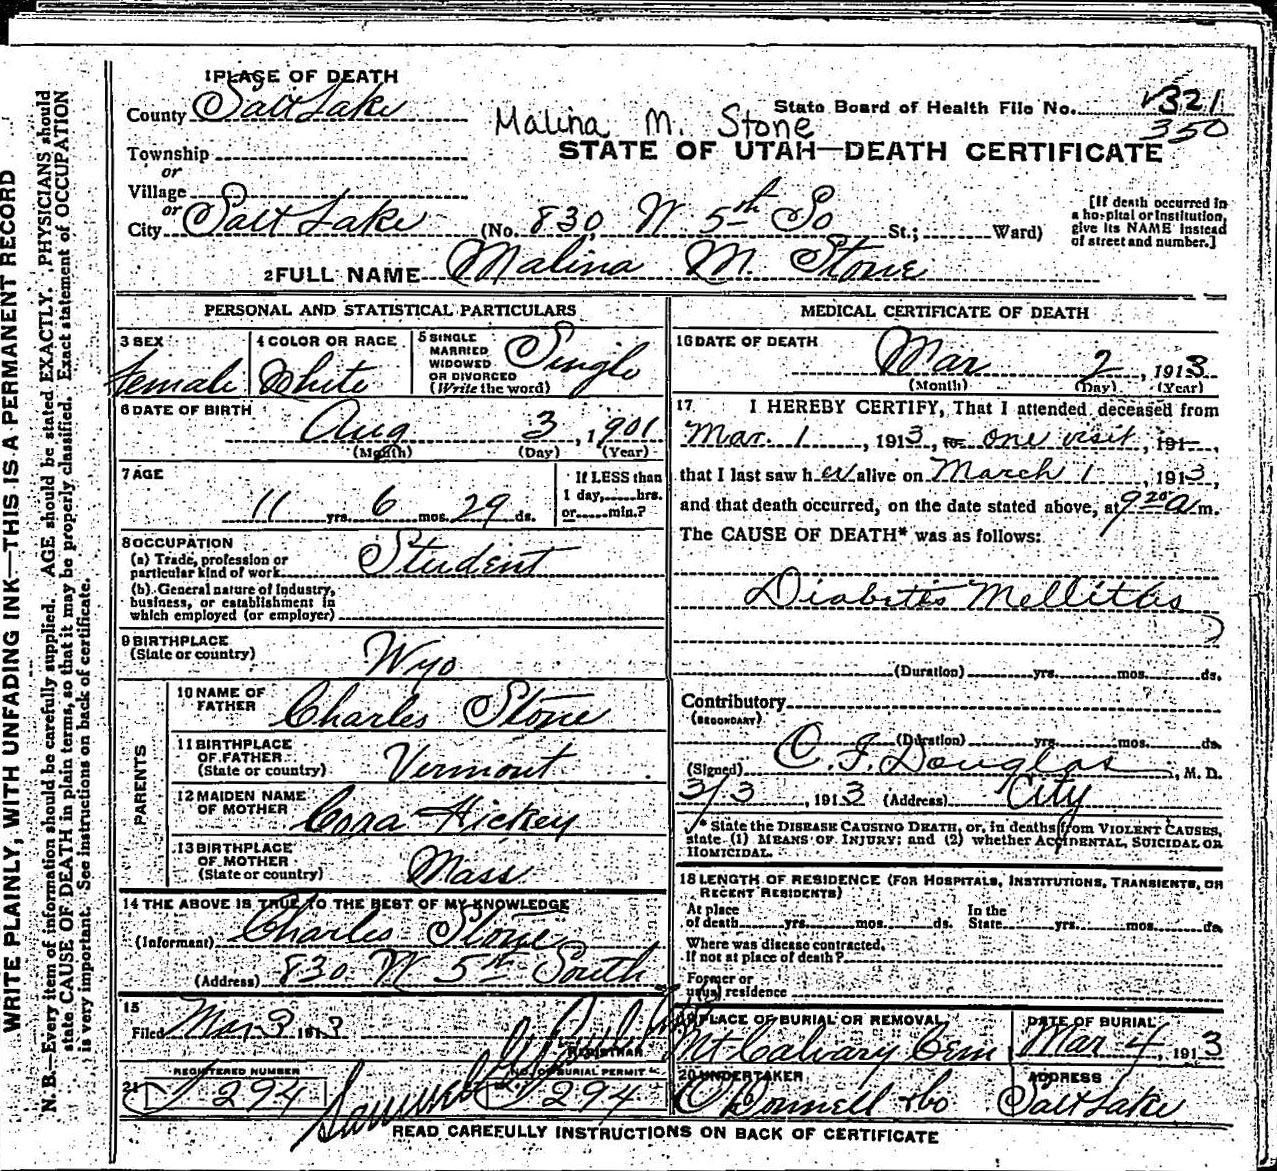 1 PLACE OF DEATH
County Salt Lake
State Board of Health File No. 321
350
Malina M. Stone
STATE OF UTAH—DEATH CERTIFICATE
Township
or
Village
or
City Salt Lake (No. 830 W 5th So St.; Ward)
[If death occurred in a hospital or institution, give its NAME instead of street and number.]
2 FULL NAME Malina M. Stone
PERSONAL AND STATISTICAL PARTICULARS
3 SEX Female
4 COLOR OR RACE White
5 SINGLE MARRIED WIDOWED OR DIVORCED (Write the word) Single
6 DATE OF BIRTH Aug 3, 1901
(Month) (Day) (Year)
7 AGE 11 yrs. 6 mos. 29 ds.
If LESS than 1 day, hrs. or min.?
8 OCCUPATION
(a) Trade, profession or particular kind of work Student
(b) General nature of industry, business, or establishment in which employed (or employer)
9 BIRTHPLACE (State or country) Wyo
PARENTS
10 NAME OF FATHER Charles Stone
11 BIRTHPLACE OF FATHER (State or country) Vermont
12 MAIDEN NAME OF MOTHER Cora Hickey
13 BIRTHPLACE OF MOTHER (State or country) Mass
14 THE ABOVE IS TRUE TO THE BEST OF MY KNOWLEDGE
(Informant) Charles Stone
(Address) 830 W 5th South
15
Filed Mar 3 1913
REGISTRAR
REGISTERED NUMBER
21 294
NO. OF BURIAL PERMIT
294
MEDICAL CERTIFICATE OF DEATH
16 DATE OF DEATH
Mar 2, 1913
(Month) (Day) (Year)
17 I HEREBY CERTIFY, That I attended deceased from
Mar. 1, 1913, to one visit, 191
that I last saw her alive on March 1, 1913,
and that death occurred, on the date stated above, at 9 20 a m.
The CAUSE OF DEATH* was as follows:
Diabetes Mellitus
(Duration) yrs. mos. ds.
Contributory
(SECONDARY)
(Duration) yrs. mos. ds.
(Signed) C. F. Douglas, M. D.
3/3, 1913 (Address) City
* State the DISEASE CAUSING DEATH, or, in deaths from VIOLENT CAUSES, state (1) MEANS OF INJURY; and (2) whether ACCIDENTAL, SUICIDAL OR HOMICIDAL.
18 LENGTH OF RESIDENCE (FOR HOSPITALS, INSTITUTIONS, TRANSIENTS, OR RECENT RESIDENTS)
At place of death yrs. mos. ds. In the State yrs. mos. ds.
Where was disease contracted, If not at place of death?
Former or usual residence
19 PLACE OF BURIAL OR REMOVAL
Mt Calvary Cem
DATE OF BURIAL
Mar 4, 1913
20 UNDERTAKER
O'Donnell & Co
ADDRESS
Salt Lake
READ CAREFULLY INSTRUCTIONS ON BACK OF CERTIFICATE
WRITE PLAINLY, WITH UNFADING INK—THIS IS A PERMANENT RECORD
N. B.—Every item of information should be carefully supplied. AGE should be stated EXACTLY. PHYSICIANS should
state CAUSE OF DEATH in plain terms, so that it may be properly classified. Exact statement of OCCUPATION
is very important. See instructions on back of certificate.